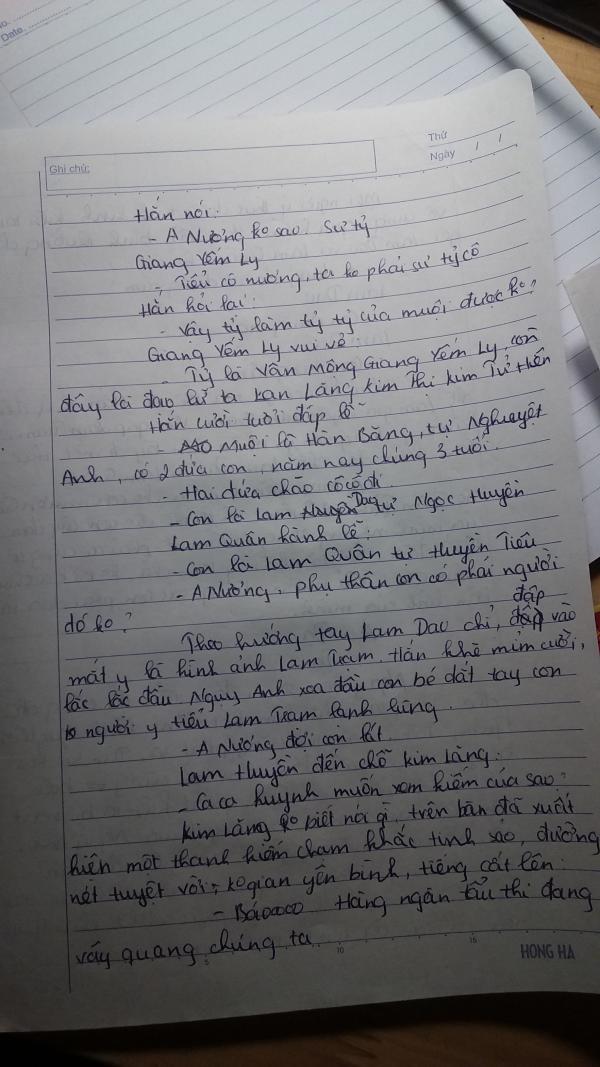 No.
Date.
Thứ
Ghi chú:
Ngày / /
Hắn nói:
- A Nương ko sao. Sư tỷ
Giang Yếm Ly
- Tiểu cô nương, ta ko phải sư tỷ cô
Hắn hỏi lại:
- Vậy tỷ làm tỷ tỷ của muội được ko?
Giang Yếm Ly vui vẻ
- Tỷ là Vân Mộng Giang Yếm Ly, còn
đây là đạo lữ ta Lan Lăng Kim Thị Kim Tử Hiên
Hắn cười tươi đáp lễ
- Muội là Hàn Băng, tự Nguyệt
Anh, có 2 đứa con, năm nay chúng 3 tuổi.
- Hai đứa chào cô cô đi.
- Con là Lam Dao tự Ngọc Huyền
Lam Quân hành lễ:
- Con là Lam Quân tự Huyền Tiêu
- A Nương, phụ thân con có phải người
đó ko?
Theo hướng tay Lam Dao chỉ, đập vào
mắt y là hình ảnh Lam Trạm. Hắn khẽ mỉm cười,
lắc lắc đầu Nguỵ Anh xoa đầu con bé dắt tay con
người y tiểu Lam Trạm lạnh lùng.
- A Nương đợi con lát.
Lam Huyền đến chỗ Kim Lăng:
- Ca ca huynh muốn xem kiếm của sao?
Kim Lăng ko biết nói gì, trên bàn đã xuất
hiện một thanh kiếm chạm khắc tinh sảo, đường
nét tuyệt vời, ko gian yên bình, tiếng cất lên:
- Báoooo Hàng ngàn tẩu thi đang
vây quang chúng ta.
5 10 15
HONG HA